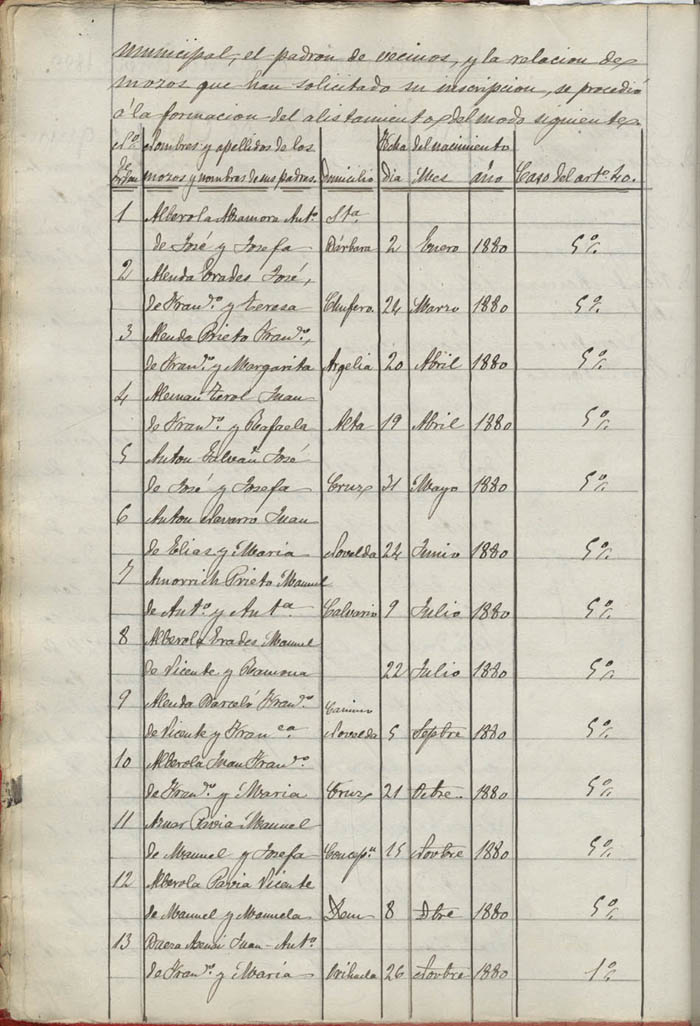 municipal, el padron de vecinos, y la relacion de
mozos que han solicitado su inscripcion, se procedió
á la formacion del alistamiento del modo siguiente
Nº de órden Nombres y apellidos de los mozos y nombres de sus padres. Domicilio Fecha del nacimiento dia Mes año Caso del artº 40.
1 Alberola Alzamora Antº Sta
de José y Josefa Bárbara 2 Enero 1880 5º
2 Alenda Erades José,
de Franco y Teresa Chufero 24 Marzo 1880 5º
3 Alenda Prieto Franco,
de Franco y Margarita Argelia 20 Abril 1880 5º
4 Aleman Terol Juan
de Franco y Rafaela Alta 19 Abril 1880 5º
5 Anton Galvañ José
de José y Josefa Cruz 31 Mayo 1880 5º
6 Anton Navarro Juan
de Elias y Maria Novelda 24 Junio 1880 5º
7 Amorrich Prieto Manuel
de Antº y Antª Calvario 9 Julio 1880 5º
8 Alberola Erades Manuel
de Vicente y Ramona 22 Julio 1880 5º
9 Alenda Barceló Franco Camino
de Vicente y Franca Novelda 5 Sepbre 1880 5º
10 Alberola Juan Franco
de Franco y Maria Cruz 21 Octre 1880 5º
11 Aznar Pavia Manuel
de Manuel y Josefa Concepn 15 Novbre 1880 5º
12 Alberola Pavia Vicente
de Manuel y Manuela Idem 8 Dbre 1880 5º
13 Juan Antº
de Franco y Maria Orihuela 26 Novbre 1880 1º